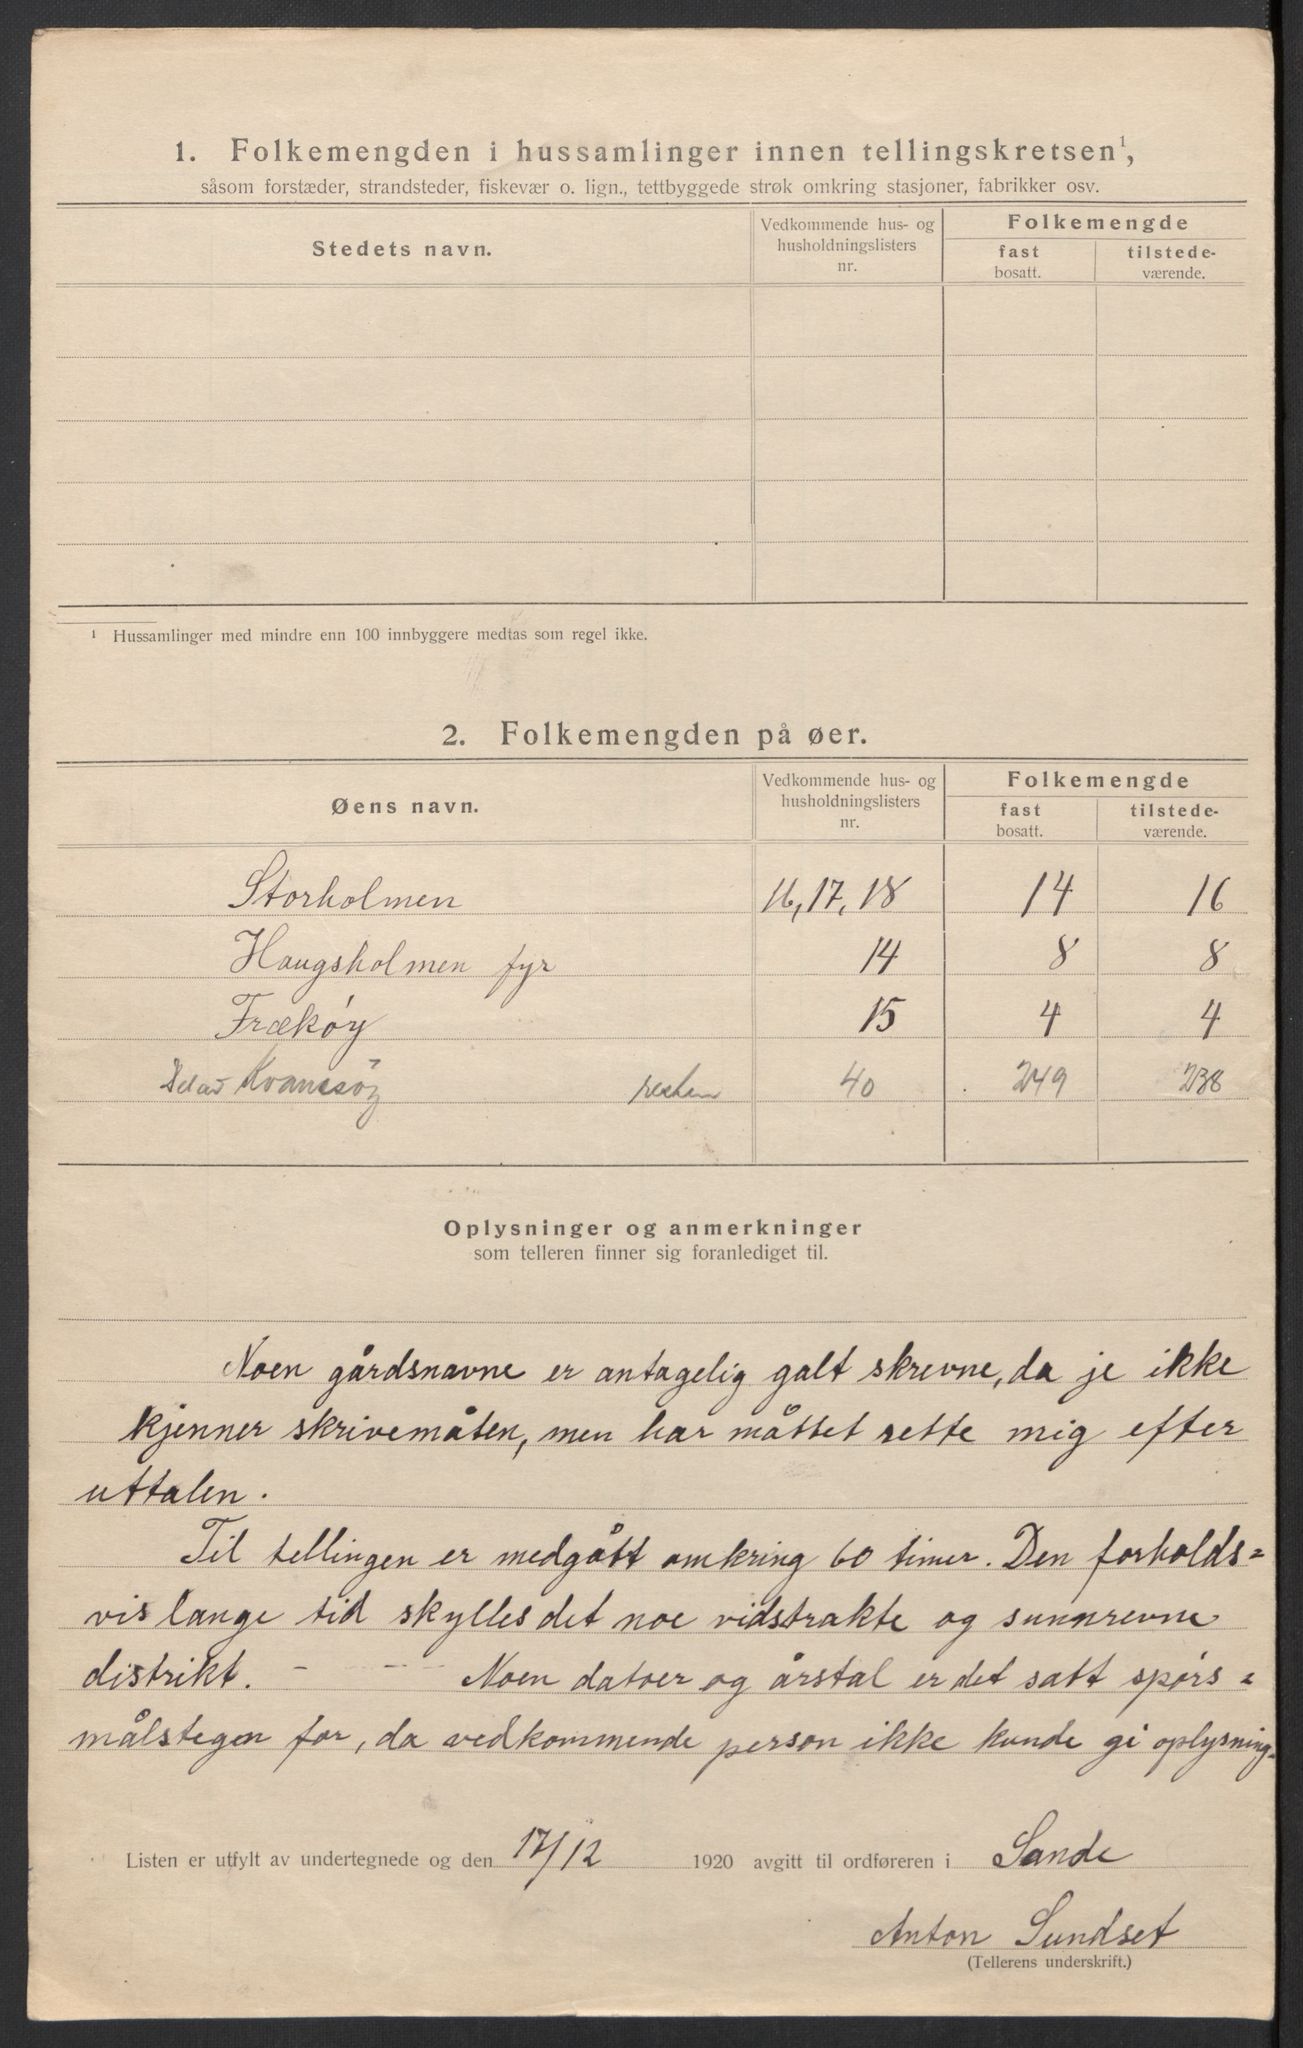 1. Folkemengden i hussamlinger innen tellingskretsen¹,
såsom forstæder, strandsteder, fiskevær o. lign., tettbyggede strøk omkring stasjoner, fabrikker osv.
Stedets navn.
Vedkommende hus- og husholdningslisters nr.
Folkemengde
fast bosatt.
tilstede-værende.
¹ Hussamlinger med mindre enn 100 innbyggere medtas som regel ikke.
2. Folkemengden på øer.
Øens navn.
Vedkommende hus- og husholdningslisters nr.
Folkemengde
fast bosatt.
tilstede-værende.
Storholmen 16, 17, 18 14 16
Haugsholmen fyr 14 8 8
Frækøy 15 4 4
Del av Kvamsøy resten 40 249 238
Oplysninger og anmerkninger
som telleren finner sig foranlediget til.
Noen gårdsnavne er antagelig galt skrevne, da je ikke
kjenner skrivemåten, men har måttet rette mig efter
uttalen.
Til tellingen er medgått omkring 60 timer. Den forholds=
vis lange tid skylles det noe vidstrakte og
distrikt. - - - Noen datoer og årstal er det satt spørs=
målstegen for, da vedkommende person ikke kunde gi oplysning.
Listen er utfylt av undertegnede og den 17/12 1920 avgitt til ordføreren i Sande
Anton Sundset
(Tellerens underskrift.)